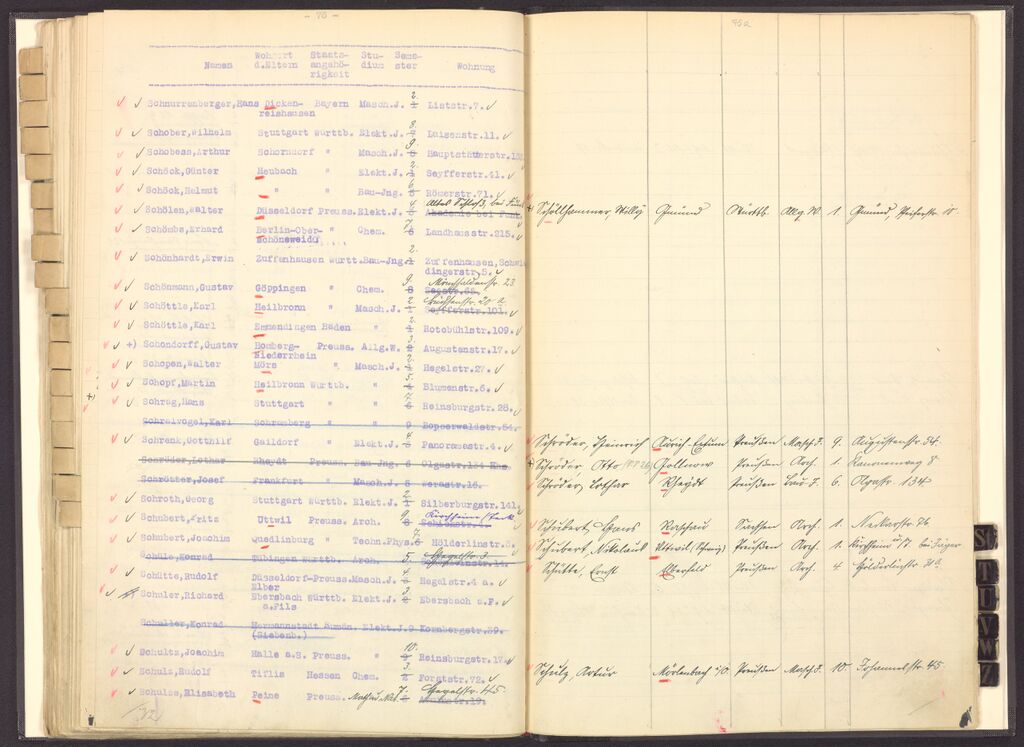 - 70 -
Namen Wohnort d.Eltern Staats-angehö-rigkeit Stu-dium Seme-ster Wohnung
Schnurrenberger,Hans Dicken- Bayern Masch.J. 2. Liststr.7.
reishausen
Schober,Wilhelm Stuttgart Württb. Elekt.J. 8. Luisenstr.11.
Schobess,Arthur Schorndorf " Masch.J. 9. Hauptstäterstr.
Schöck,Günter Heubach " Elekt.J. 2. Seyfferstr.41.
Schöck,Helmut " " Bau-Jng. 6 Römerstr.71.
Schölen,Walter Düsseldorf Preuss. Elekt.J. 4 Altes Schloß, bei
Schömbs,Erhard Berlin-Ober- " Chem. 7. Landhausstr.215.
Schöneweide
Schönhardt,Erwin Zuffenhausen Württ. Bau-Jng. 2. Zuffenhausen,
dingerstr.5.
Schönmann,Gustav Göppingen " Chem. 9.
Schöttle,Karl Heilbronn " Masch.J. 2 20 a. Seyfferstr.101.
Schöttle,Karl Emmendingen Baden " 2. Rotebühlstr.109.
+) Schondorff,Gustav Homberg- Preuss. Allg.W. 3. Augustenstr.17.
Niederrhein
Schopen,Walter Mörs " Masch.J. 2. Hegelstr.27.
Schopf,Martin Heilbronn Württb. " 5. Blumenstr.6.
+)
Schrag,Hans Stuttgart " " 7. Reinsburgstr.28.
Schraivogel,Karl Schramberg " " 9 Hopperwaldstr.54.
Schrenk,Gotthilf Gaildorf " Elekt.J. 4. Panoramastr.4.
Schröder,Lothar Rheydt Preuss. Bau-Jng. 6 Olgastr.134
Schrötter,Josef Frankfurt " Masch.J. 8 Werastr.15.
Schroth,Georg Stuttgart Württb. Elekt.J. 2. Silberburgstr.141.
Schubert,Fritz Uttwil Preuss. Arch. 9. Kirchheim
Schubert,Joachim Quedlinburg " Techn.Phys. 7. Hölderlinstr.3.
Schüle,Konrad Tübingen Württb. Arch. 5. Hegelstr. 3
Schütte,Rudolf Düsseldorf- Preuss. Masch.J. 4. Hegelstr.4 a.
Elber
Schuler,Richard Ebersbach Württb. Elekt.J. 3. Ebersbach a.F.
a.Fils
Schuller,Konrad Hermannstadt Rumän. Elekt.J. 9 Kornbergstr.39.
(Siebenb.)
Schultz,Joachim Halle a.S. Preuss. " 10. Reinsburgstr.17.
Schulz,Rudolf Tiflis Hessen Chem. 3. Forststr.72.
Schulze,Elisabeth Peine Preuss. Math.u.Nat. 7. Hegelstr. 45.
/32/
70a
+) Schöllhammer, Willy Gmünd Württb. Allg.W. 1. Gmünd,
Schröder, Heinrich Preußen Masch.J. 9. Augustenstr. 54.
+ Schröder Otto Gollnow Preußen Arch. 1. Kanonenweg 8
Schröder, Lothar Rheydt Preußen Bau J. 6. Olgastr. 134
Schubert, Hans Sachsen Arch. 1. Neckarstr. 76
Schubert, Nikolaus Uttwil (Schweiz) Preußen Arch. 1. Kirchheim u/T. bei Jäger
Schütte, Ernst Elberfeld Preußen Arch. 4 Hölderlinstr.
Schulz, Artur Mörlenbach i/O. Preußen Masch.J. 10. Johannesstr. 45.
S
T
U
V W
Z